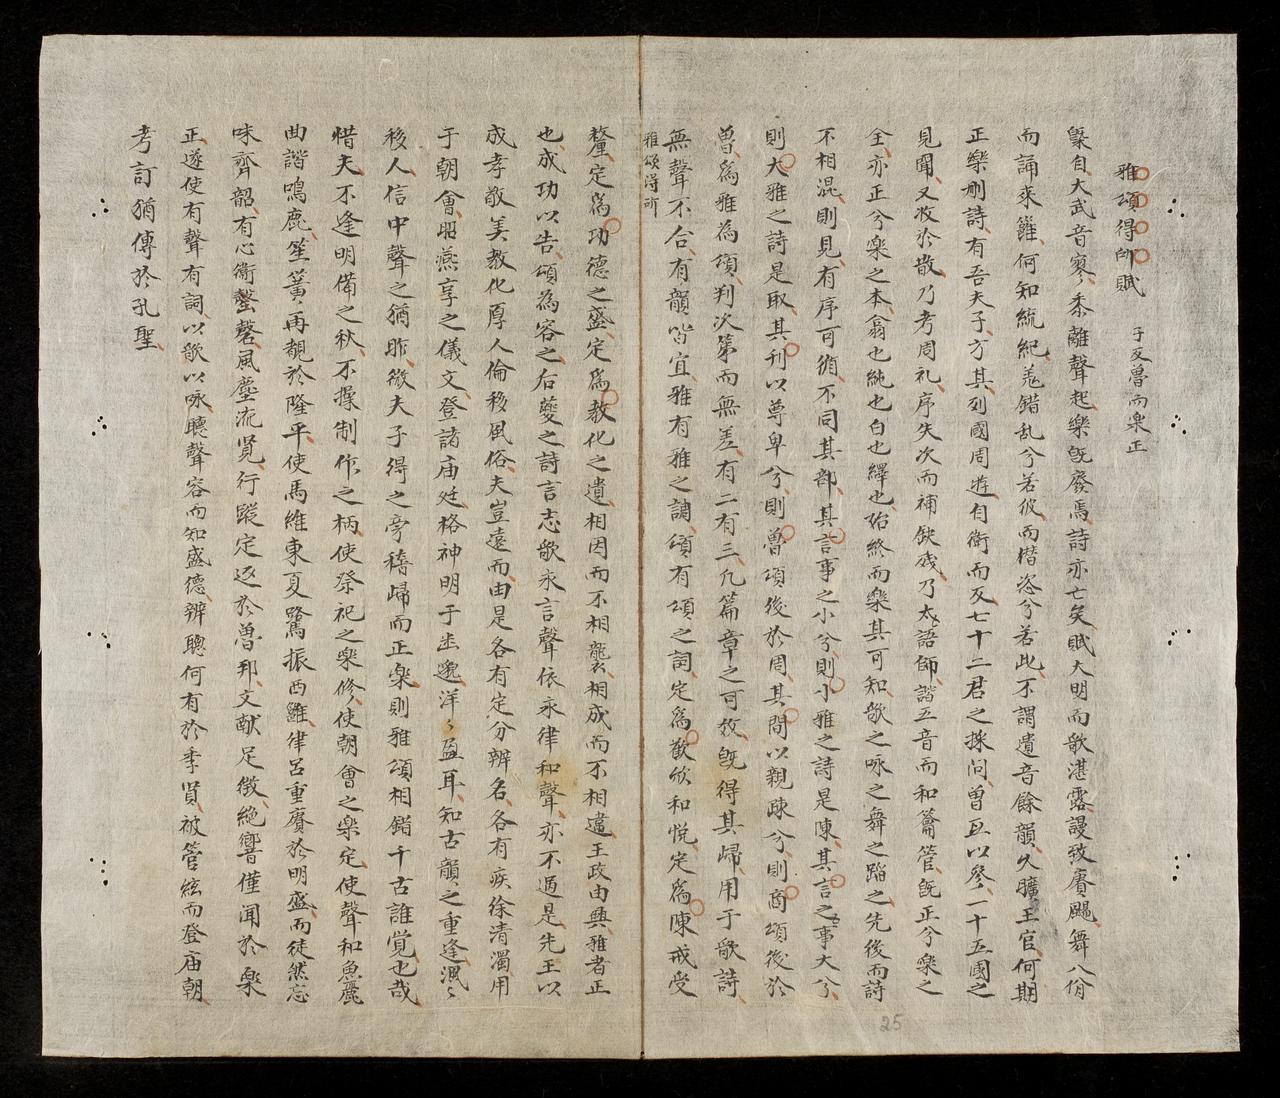 雅頌得所賦 子反魯而楽正
槩自大武音寥黍離聲起樂旣廢焉詩亦亡矣賦大明而歌湛露謾致賡颺舞八佾
而誦來雝何知統紀羌錯乱兮若彼而楷恣兮若此不謂遺音餘韻久曠王官何期
正樂刪詩有吾夫子方其列國周遊自衛而反七十二君之採问曽丑以參一十五國之
見聞又收於散乃考周礼序失次而補缺残乃太語師諧五音而和籥管旣正兮楽之
全亦正兮楽之本翕也純也白也繹也始終而樂其可知歌之咏之舞之蹈之先後而詩
不相混則見有序可循不同其部其言事之小兮則小雅之詩是陳其言之事大兮
則大雅之詩是取其刊以尊卑兮則魯頌後於周其問以親疎兮則商頌後於
魯爲雅為頌判次第而無差有二有三凢篇章之可攷旣得其歸用于歌詩
無聲不合有韻皆宜雅有雅之調頌有頌之詞定爲歡欣和悦定爲陳戒受
雅頌得所
釐定爲功德之盛定爲教化之遺相因而不相襲相成而不相違王政由興雅者正
也成功以告頌為容之后夔之詩言志歌永言聲依永律和聲亦不過是先王以
成孝敬美教化厚人倫移風俗夫豈遠而由是各有定分辨名各有疾徐清濁用
于朝會昭燕享之儀文登諸庙廷格神明于幽邈洋〻盈耳知古韻之重逢渢〻
移人信中聲之猶昨微夫子得之旁稽歸而正楽則雅頌相錯千古誰覚也哉
惜夫不逢明備之秋不操制作之柄使祭祀之楽修使朝會之楽定使聲和魚麗
曲諧鳴鹿笙簧再覩於隆平使馬維東夏鷺振西雝律呂重賡於明盛而徒然忘
味齊韶有心衛罄磬風塵流覽行蹤定返於魯邦文献足徴絶響僅闻於楽
正遂使有聲有詞以歌以咏聴聲容而知盛德辨聰何有於季賢被管絃而登庙朝
考訂猶傳於孔聖
25